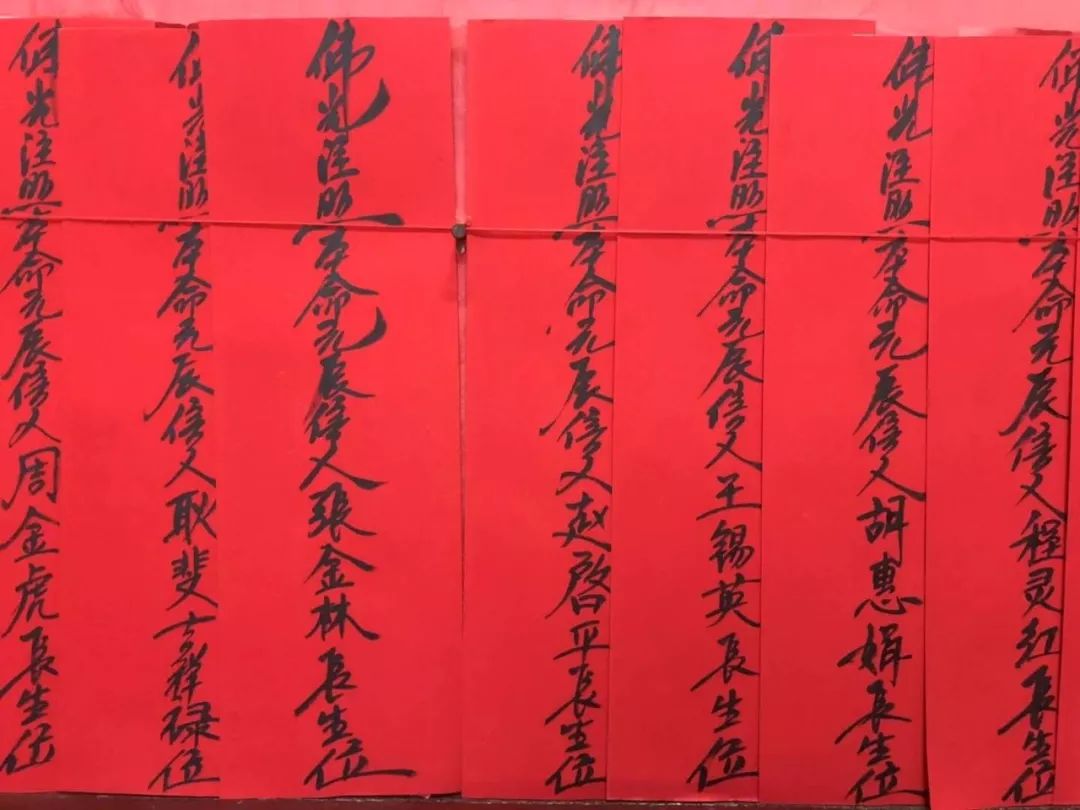 佛光注照本命元辰信人程灵红長生位
佛光注照本命元辰信人胡惠娟長生位
佛光注照本命元辰信人王锡英長生位
佛光注照本命元辰信人赵啓平長生位
佛光注照本命元辰信人張金林長生位
佛光注照本命元辰信人耿斐吉祥禄位
佛光注照本命元辰信人周金虎長生位